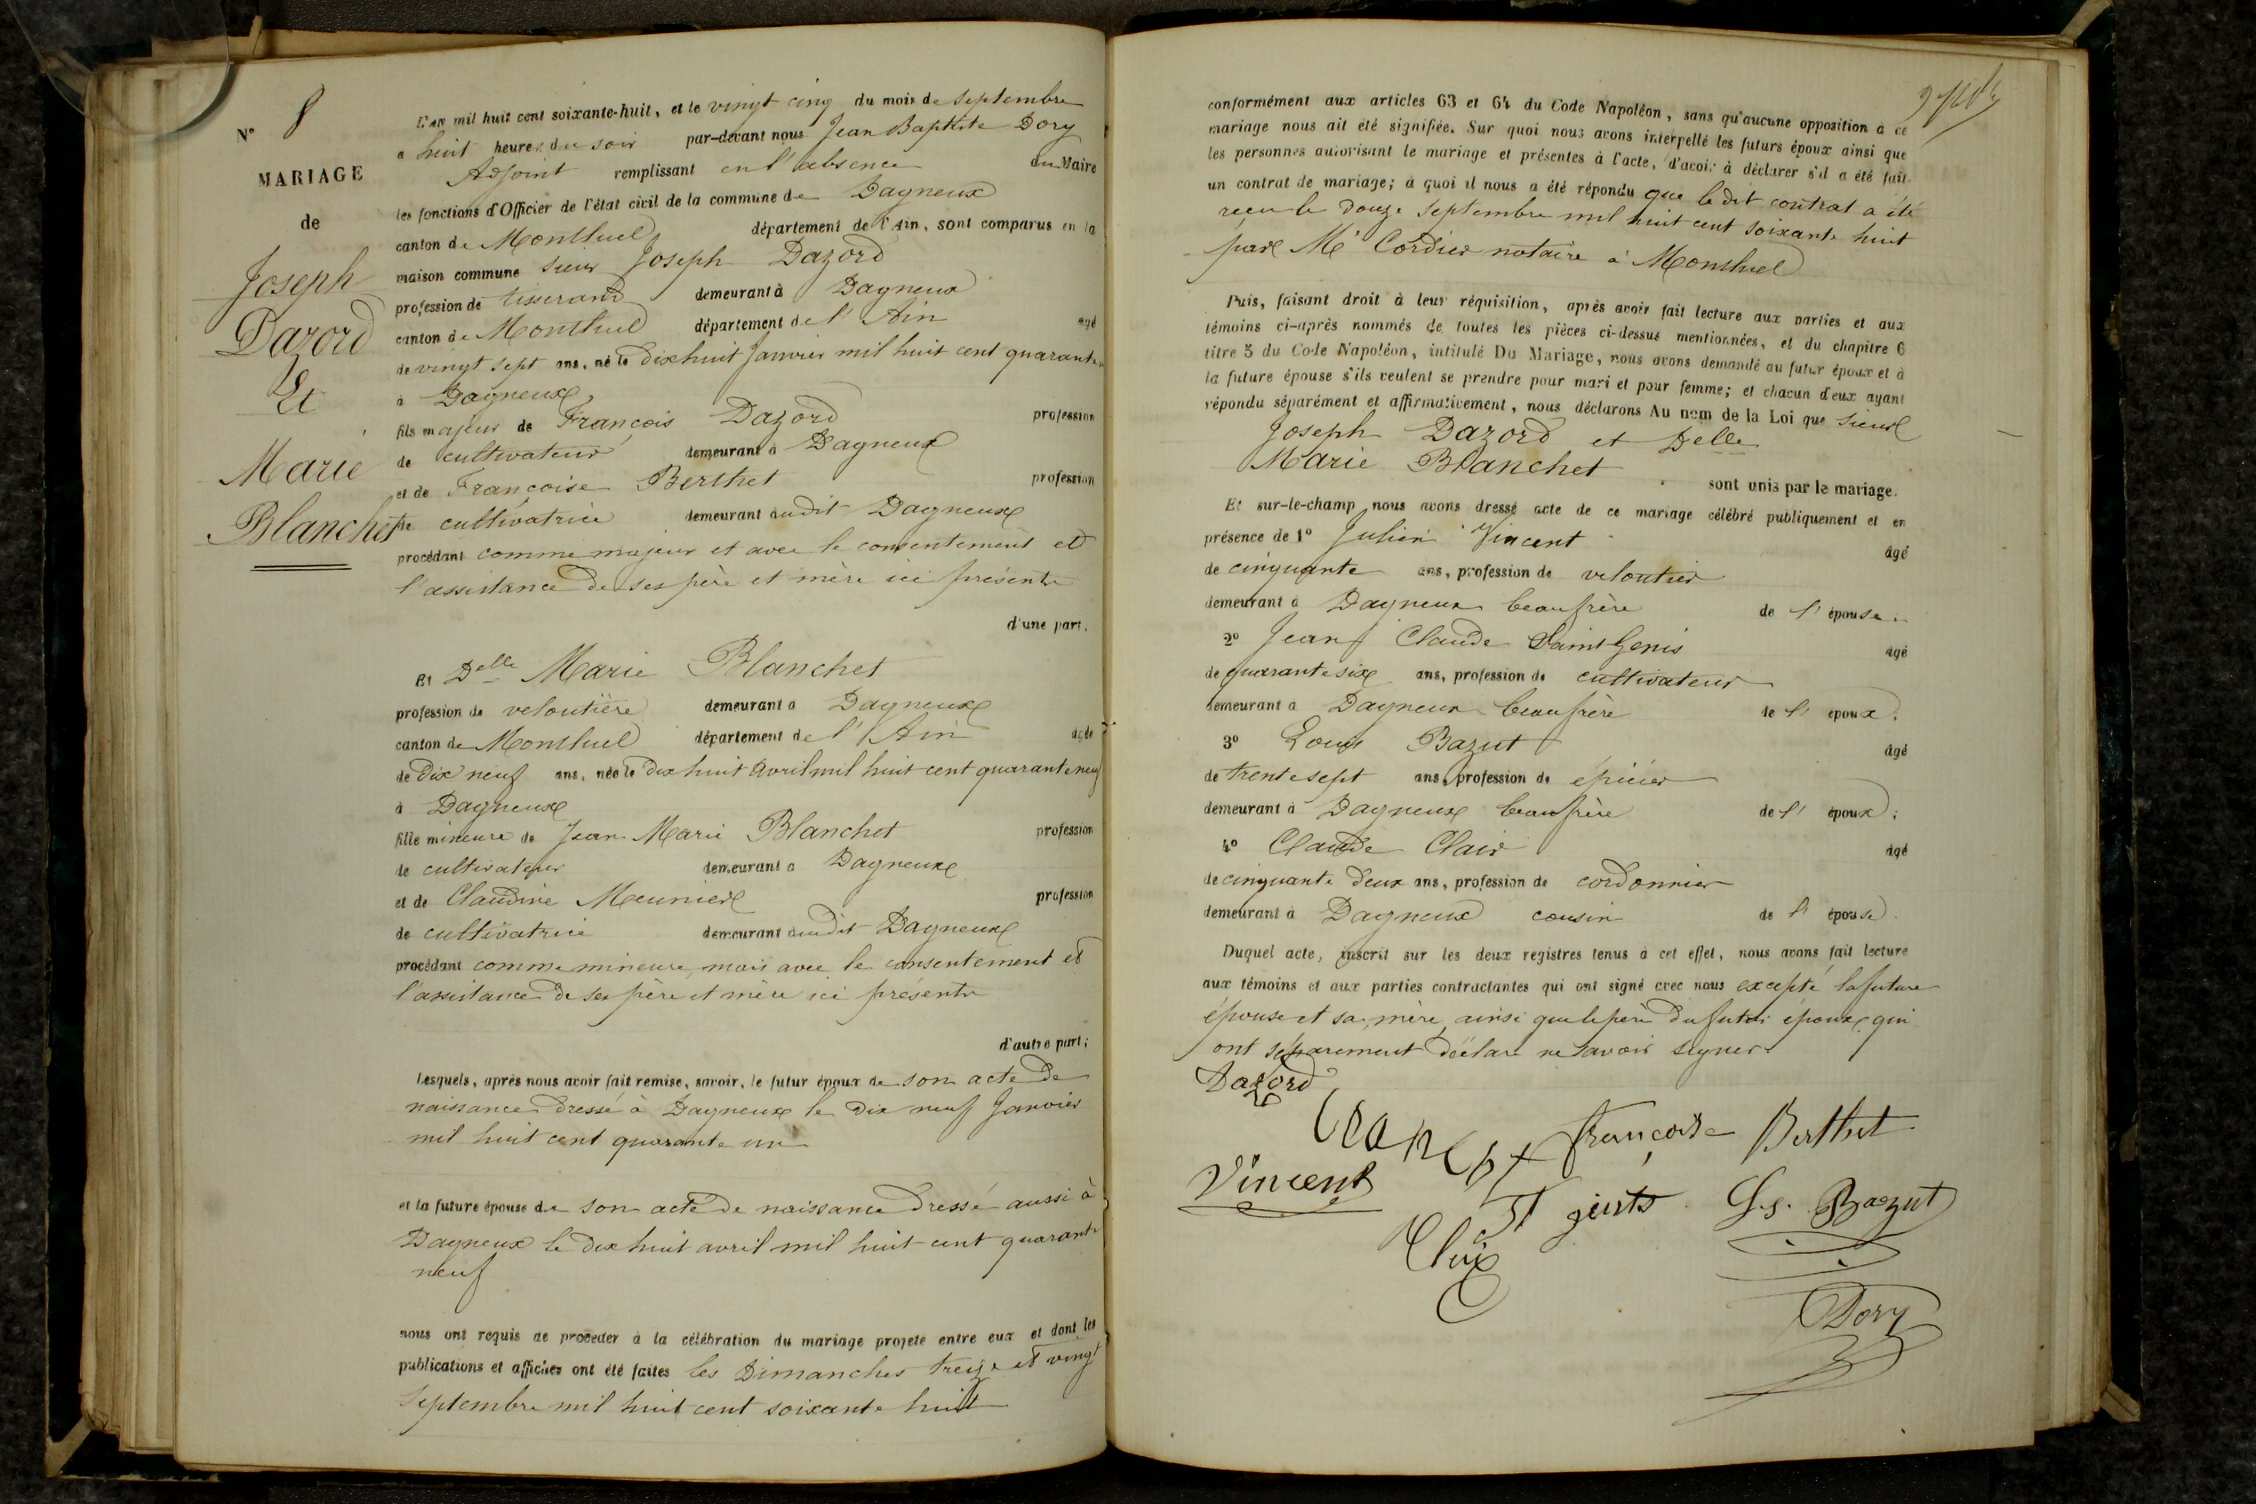 N° 8
MARIAGE
de
Joseph
Dazord
Et
Marie
Blanchet
L'an mil huit cent soixante-huit, et le vingt cinq du mois de Septembre
à huit heures du soir par-devant nous Jean Baptiste Dory
Adjoint remplissant en l'absence du Maire
les fonctions d'Officier de l'état civil de la commune de Dagneux
canton de Montluel département de l'Ain, sont comparus en la
maison commune sieur Joseph Dazord
profession de tisserand demeurant à Dagneux
canton de Montluel département de l'Ain âgé
de vingt sept ans, né le dix huit Janvier mil huit cent quarante
à Dagneux
fils majeur de François Dazord profession
de cultivateur demeurant à Dagneux
et de Françoise Berthet profession
de cultivatrice demeurant audit Dagneux
procédant comme majeur et avec le consentement et
l'assistance de ses père et mère ici présents
d'une part.
Et Delle Marie Blanchet
profession de veloutière demeurant à Dagneux
canton de Montluel département de l'Ain âgée
de dix neuf ans, née le dix huit avril mil huit cent quarante neuf
à Dagneux
fille mineure de Jean Marie Blanchet profession
de cultivateur demeurant à Dagneux
et de Claudine Meunier profession
de cultivatrice demeurant audit Dagneux
procédant comme mineure, mais avec le consentement et
l'assistance de ses père et mère ici présents
d'autre part;
Lesquels, après nous avoir fait remise, savoir, le futur époux de son acte de
naissance dressé à Dagneux le dix neuf Janvier
mil huit cent quarante un
et la future épouse de son acte de naissance dressé aussi à
Dagneux le dix huit avril mil huit cent quarante
neuf
nous ont requis de procéder à la célébration du mariage projeté entre eux et dont les
publications et affiches ont été faites les Dimanches treize et vingt
Septembre mil huit cent soixante huit
conformément aux articles 63 et 64 du Code Napoléon, sans qu'aucune opposition à ce
mariage nous ait été signifiée. Sur quoi nous avons interpellé les futurs époux ainsi que
les personnes autorisant le mariage et présentes à l'acte, d'avoir à déclarer s'il a été fait
un contrat de mariage; à quoi il nous a été répondu que le dit contrat a été
reçu le douze Septembre mil huit cent soixante huit
par Me Cordier notaire à Montluel
Puis, faisant droit à leur réquisition, après avoir fait lecture aux parties et aux
témoins ci-après nommés de toutes les pièces ci-dessus mentionnées, et du chapitre 6
titre 5 du Code Napoléon, intitulé Du Mariage, nous avons demandé au futur époux et à
la future épouse s'ils veulent se prendre pour mari et pour femme; et chacun d'eux ayant
répondu séparément et affirmativement, nous déclarons Au nom de la Loi que Sieur
Joseph Dazord et Delle
Marie Blanchet
sont unis par le mariage.
Et sur-le-champ nous avons dressé acte de ce mariage célébré publiquement et en
présence de 1° Julien Vincent âgé
de cinquante ans, profession de veloutier
demeurant à Dagneux beaufrère de l'épouse.
2° Jean Claude Saint Genis âgé
de quarante six ans, profession de cultivateur
demeurant à Dagneux beaufrère de l'époux.
3° Louis Bazut âgé
de trente sept ans, profession de épicier
demeurant à Dagneux beaufrère de l'époux;
4° Claude Clair âgé
de cinquante deux ans, profession de cordonnier
demeurant à Dagneux cousin de l'épouse.
Duquel acte, inscrit sur les deux registres tenus à cet effet, nous avons fait lecture
aux témoins et aux parties contractantes qui ont signé avec nous excepté la future
épouse et sa mère, ainsi que le père du futur époux, qui
ont séparement déclaré ne savoir signer.
Dazord
françoise Berthet
Vincent
St genis
Ls. Bazut
Dory